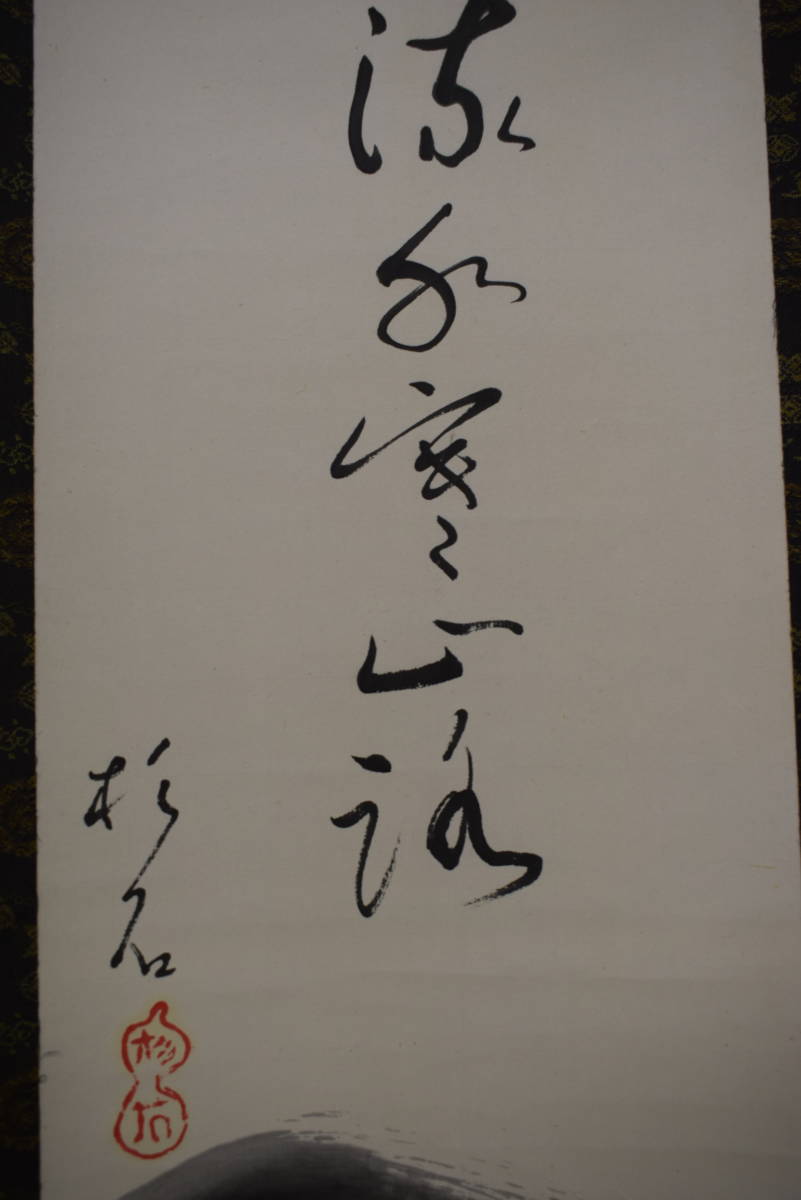 流水寒山路
杉石
杉石